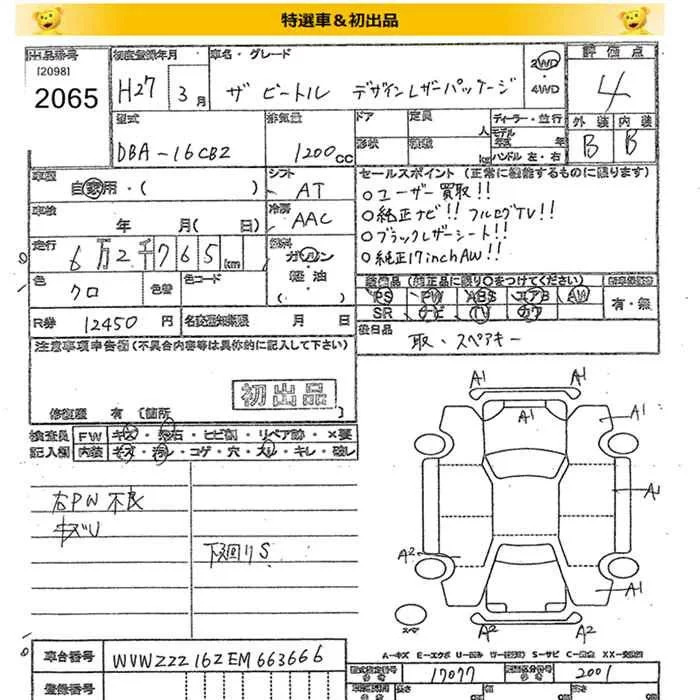 特選車&初出品
出品番号 初度登録年月 車名・グレード 2WD・4WD 評価点
[2098]
2065 H27 3月 ザ ビートル デザインレザーパッケージ 4
型式 排気量 ドア 定員 人 ディーラー・並行 外装 内装
DBA-16CBZ 1200cc 形状 積載 kg モデル 年式 年 ハンドル 左・右 B B
車歴 自家用・( ) シフト AT
セールスポイント(正常に機能するものに限ります)
○ユーザー買取!!
○純正ナビ!! フルセグTV!!
○ブラックレザーシート!!
○純正17inchAW!!
車検 年 月( 日) 冷房 AAC
走行 6万2千765km 燃料 ガソリン 軽・油 ・( )
色 クロ 色替 色コード
装備品(純正品に限り○をつけてください)
PS PW ABS エアB AW 有・無
SR ナビ TV カワ
R券 12450円 名変通知期限 月 日
後日品 取、スペアキー
注意事項申告欄(不具合内容等は具体的に記入して下さい)
初出品
修復歴 有〔箇所 〕
検査員 FW キズ・飛石・ヒビ割・リペア跡・×要
記入欄 内装 キズ・汚レ・コゲ・穴・スレ・キレ・破レ
右PW不良
キズU
下廻りS
A1 A1
A1 A1
A1
A2
A1
A2 A2
スペア
A=キズ E=エクボ U=凹み W=(補修跡) S=サビ C=腐食 XX=交換済
車台番号 WVWZZZ16ZEM663666
型式指定番号 17077 類別区分番号 2001
登録番号 長さ cm 幅 cm 高さ cm